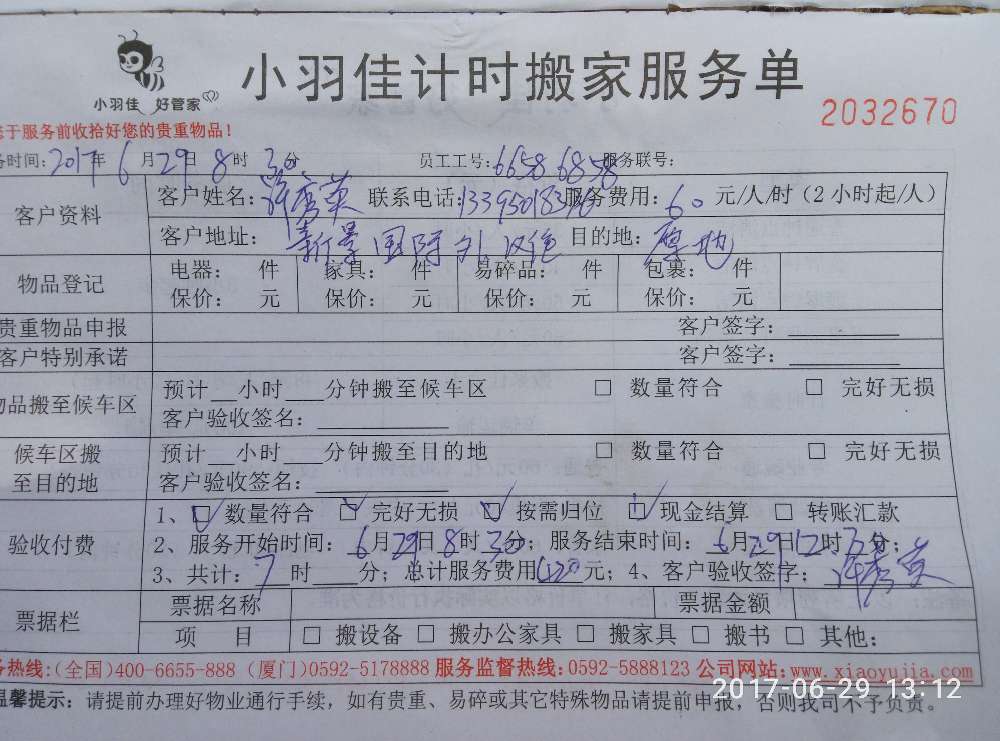 小羽佳 好管家
小羽佳计时搬家服务单
2032670
于服务前收拾好您的贵重物品！
时间：2017年6月29日8时30分 员工工号：6658 6858 服务联号：
客户资料
客户姓名：许秀英 联系电话： 服务费用：60元/人/时（2小时起/人）
客户地址：新景国际外 目的地：原地
物品登记
电器： 件 家具： 件 易碎品： 件 包裹： 件
保价： 元 保价： 元 保价： 元 保价： 元
贵重物品申报 客户签字：
客户特别承诺 客户签字：
物品搬至候车区
预计__小时___分钟搬至候车区 □ 数量符合 □ 完好无损
客户验收签名：
候车区搬至目的地
预计__小时___分钟搬至目的地 □ 数量符合 □ 完好无损
客户验收签名：
验收付费
1、☑ 数量符合 ☑ 完好无损 ☑ 按需归位 ☑ 现金结算 □ 转账汇款
2、服务开始时间：6月29日8时30分；服务结束时间：6月29日12时 分；
3、共计：7时___分；总计服务费用420元；4、客户验收签字：许秀英
票据栏
票据名称 票据金额
项 目 □ 搬设备 □ 搬办公家具 □ 搬家具 □ 搬书 □ 其他：
务热线：(全国)400-6655-888 (厦门)0592-5178888 服务监督热线：0592-5888123 公司网站：www.xiaoyujia.com
温馨提示：请提前办理好物业通行手续，如有贵重、易碎或其它特殊物品请提前申报，否则我司不予负责。
2017-06-29 13:12